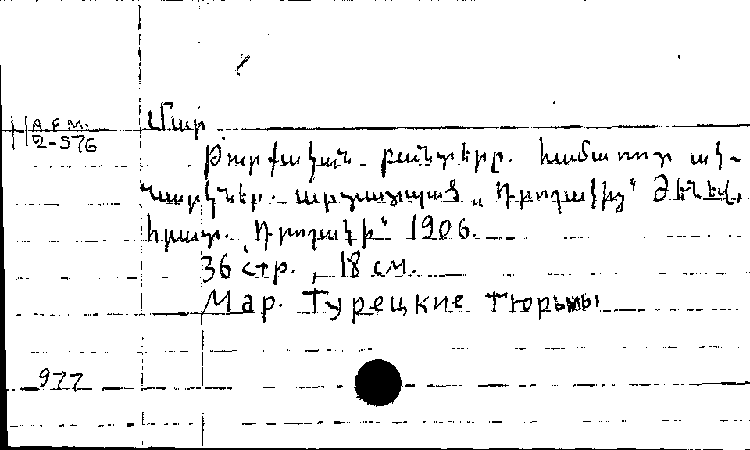 A.F.M. Մար
2-576
Թուրքական բանտերը. համառօտ ակ-
նարկներ. արտատպւած „Դրօշակից" Ժենեվ,
հրատ. „Դրօշակի" 1906.
36 стр., 18 см.
Мар. Турецкие тюрьмы
977